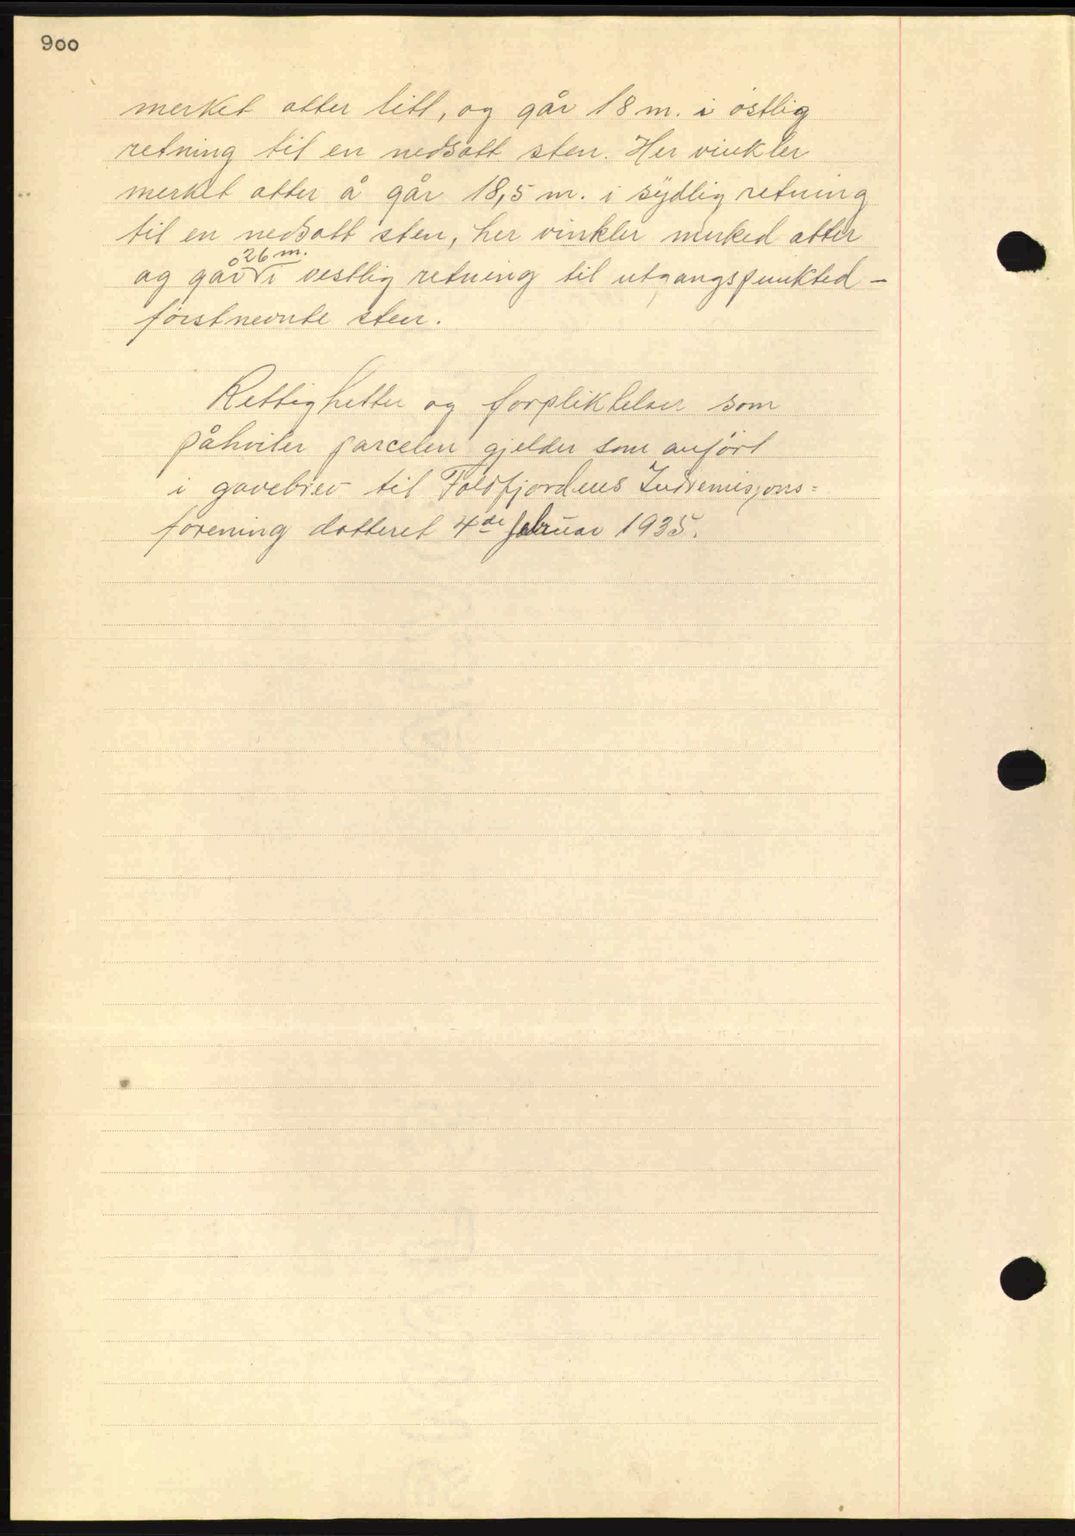 900
merket atter litt, og går 18 m. i østlig
retning til en nedsatt sten. Her vinkler
merket atter å går 18,5 m. i sydlig retning
til en nedsatt sten, her vinkler merked atter
26 m.
og går i vestlig retning til utgangspunkted -
førstnevnte sten.
Rettighetter og forpliktelser som
påhviler parcelen gjelder som anført
i gavebrev til Foldfjordens Indremisjons=
forening datteret 4de februar 1935.